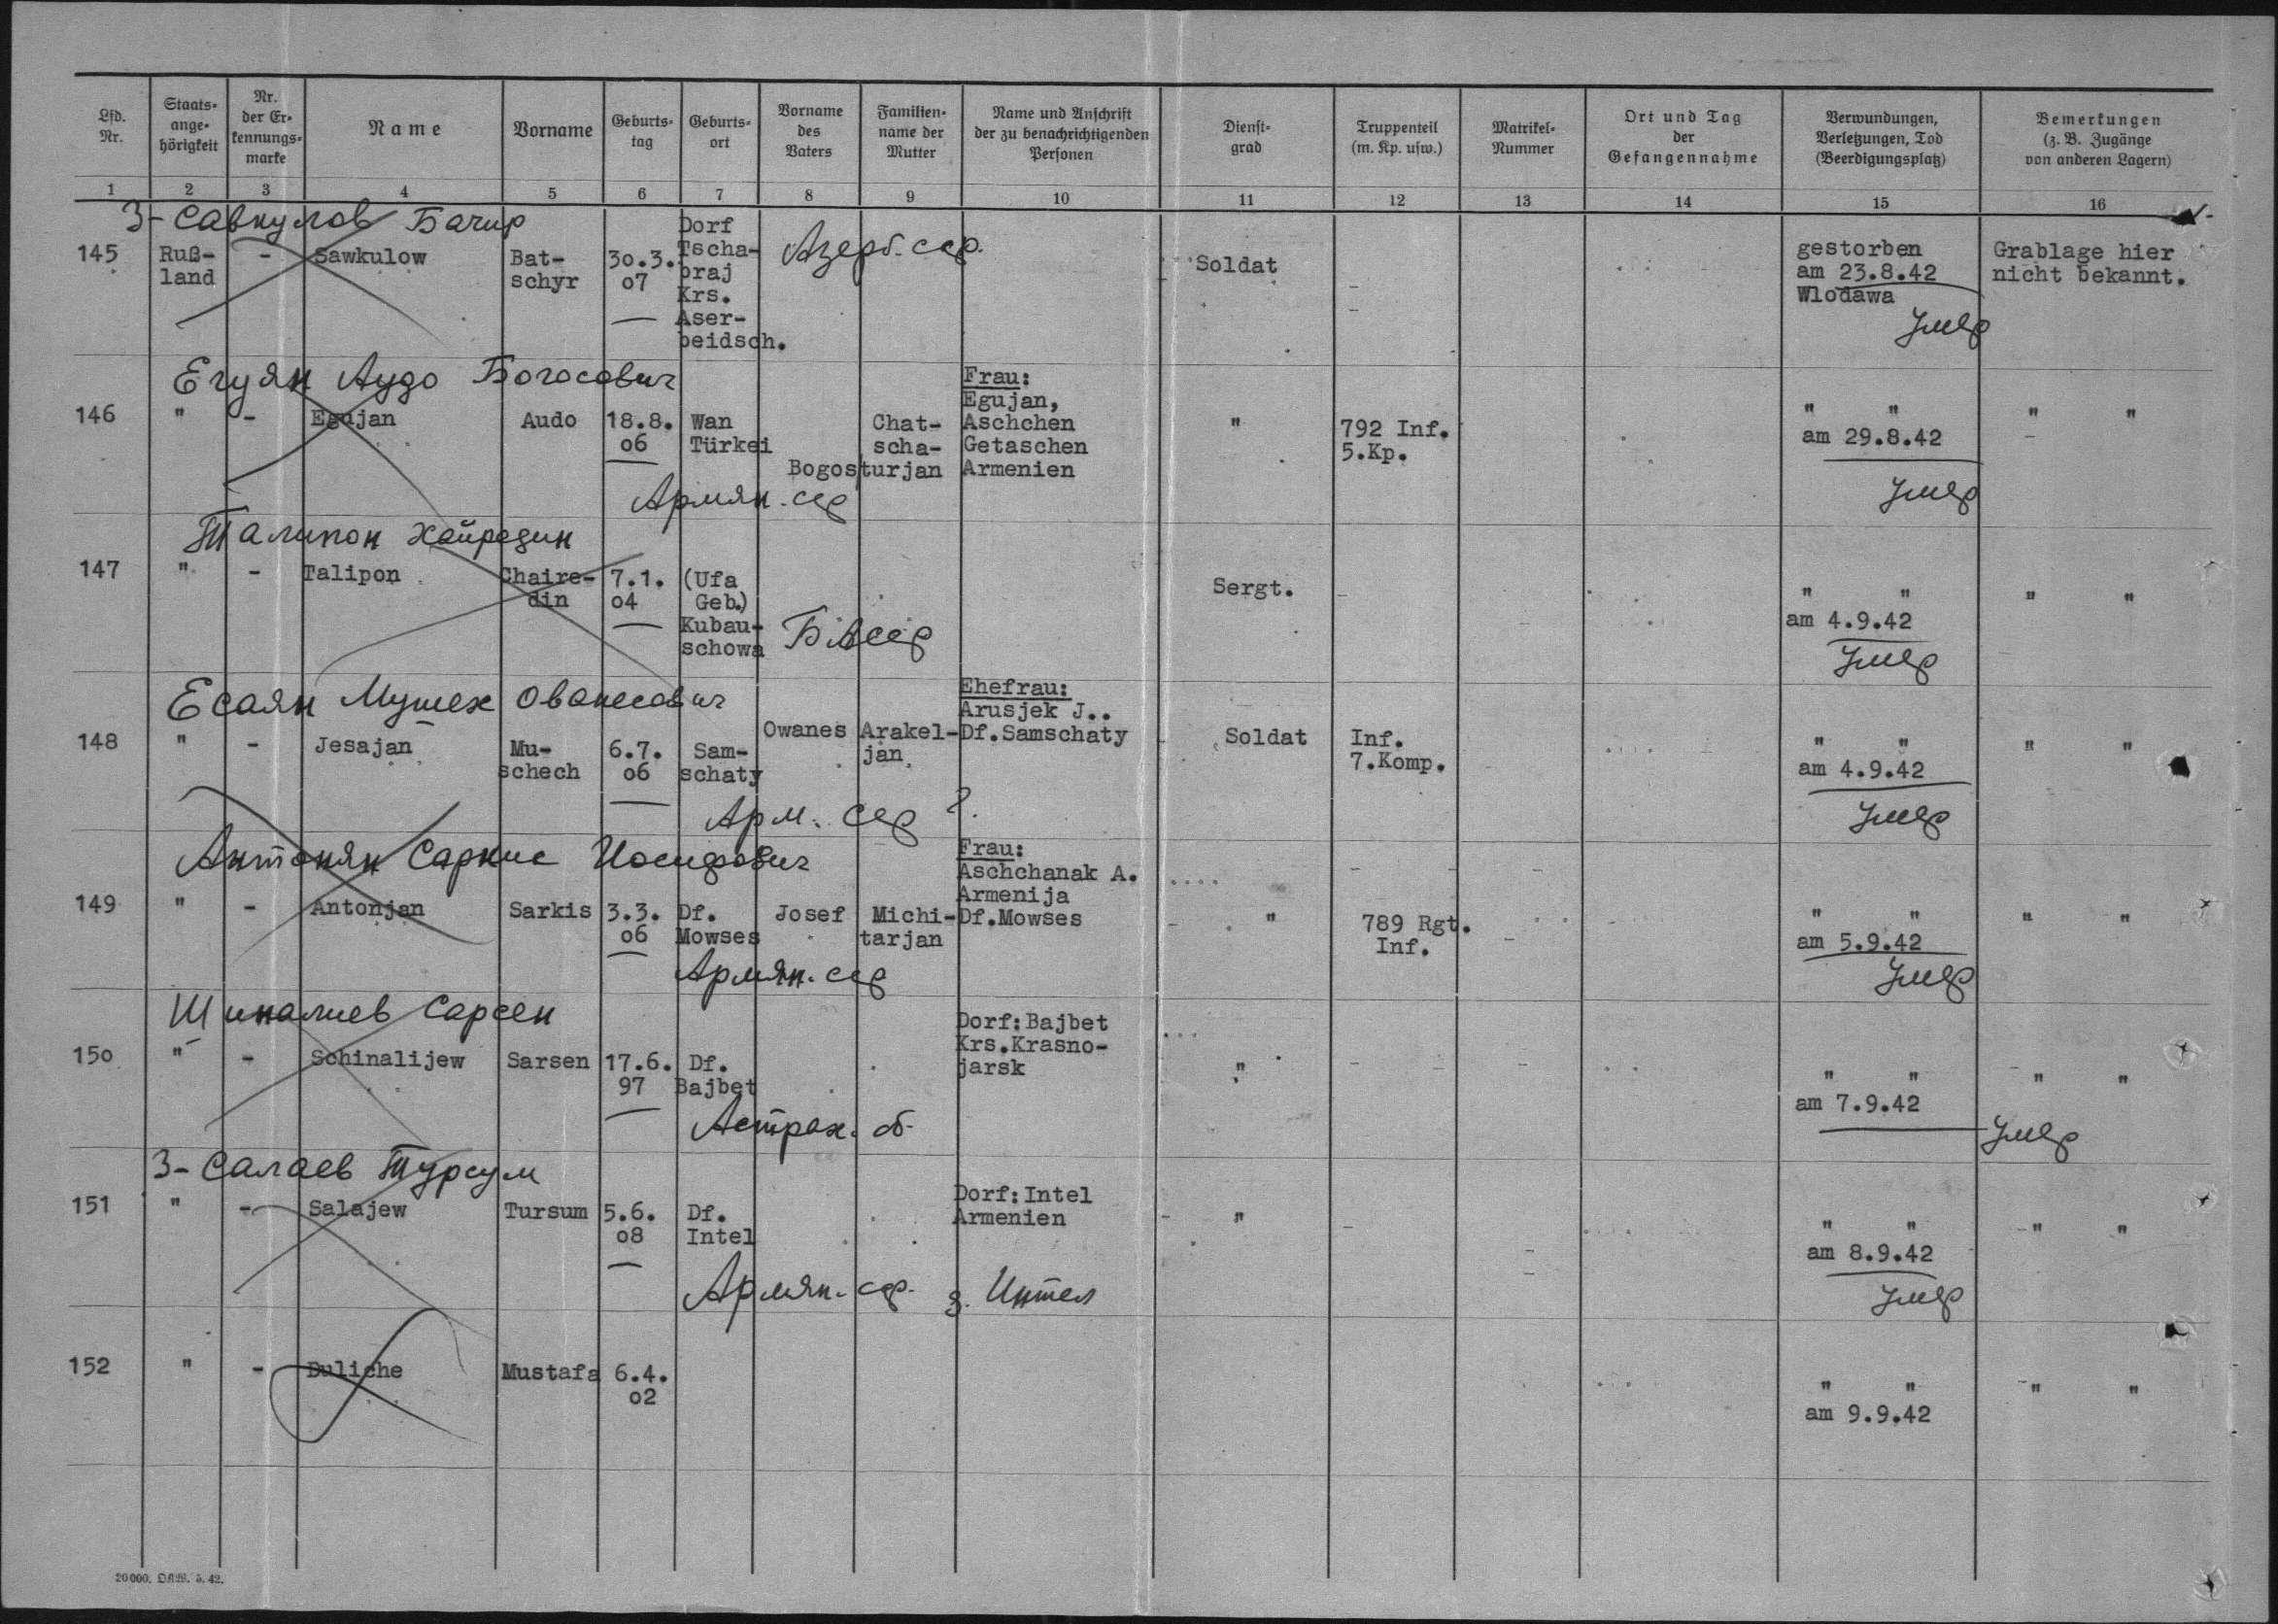 Lfd. Nr. | Staats-angehörigkeit | Nr. der Erkennungs-marke | Name | Vorname | Geburts-tag | Geburts-ort | Vorname des Vaters | Familien-name der Mutter | Name und Anschrift der zu benachrichtigenden Personen | Dienst-grad | Truppenteil (m. Kp. usw.) | Matrikel-Nummer | Ort und Tag der Gefangennahme | Verwundungen, Verletzungen, Tod (Beerdigungsplatz) | Bemerkungen (z. B. Zugänge von anderen Lagern)
1 2 3 4 5 6 7 8 9 10 11 12 13 14 15 16
3- Савкулов Бачир
145 Ruß-land - Sawkulow Bat-schyr 30.3.07 Dorf Tscha-braj Krs. Aser-beidsch. Soldat gestorben am 23.8.42 Wlodawa Grablage hier nicht bekannt.
Азерб. сср.
Умер
Егуян Аудо Богосович
146 " - Egujan Audo 18.8.06 Wan Türkei Bogos Chat-scha-turjan Frau: Egujan, Aschchen Getaschen Armenien " 792 Inf. 5.Kp. " " am 29.8.42 " "
Армян. сср
Умер
Талипон Хайредин
147 " - Talipon Chaire-din 7.1.04 (Ufa Geb.) Kubau-schowa Sergt. " " am 4.9.42 " "
БАССР
Умер
Есаян Мушех Ованесович
148 " - Jesajan Mu-schech 6.7.06 Sam-schaty Owanes Arakel-jan Ehefrau: Arusjek J.. Df.Samschaty Soldat Inf. 7.Komp. " " am 4.9.42 " "
Арм. сср ?
Умер
Антонян Саркис Иосифович
149 " - Antonjan Sarkis 3.3.06 Df. Mowses Josef Michi-tarjan Frau: Aschchanak A. Armenija Df.Mowses " 789 Rgt. Inf. " " am 5.9.42 " "
Армян. сср
Умер
Шиналиев Сарсен
150 " - Schinalijew Sarsen 17.6.97 Df. Bajbet Dorf:Bajbet Krs.Krasno-jarsk " " " am 7.9.42 " "
Астрах. об.
Умер
3- Салаев Турсум
151 " - Salajew Tursum 5.6.08 Df. Intel Dorf:Intel Armenien " " " am 8.9.42 " "
Армян. сср. д. Интел
Умер
152 " - Duliche Mustafa 6.4.02 " " am 9.9.42 " "